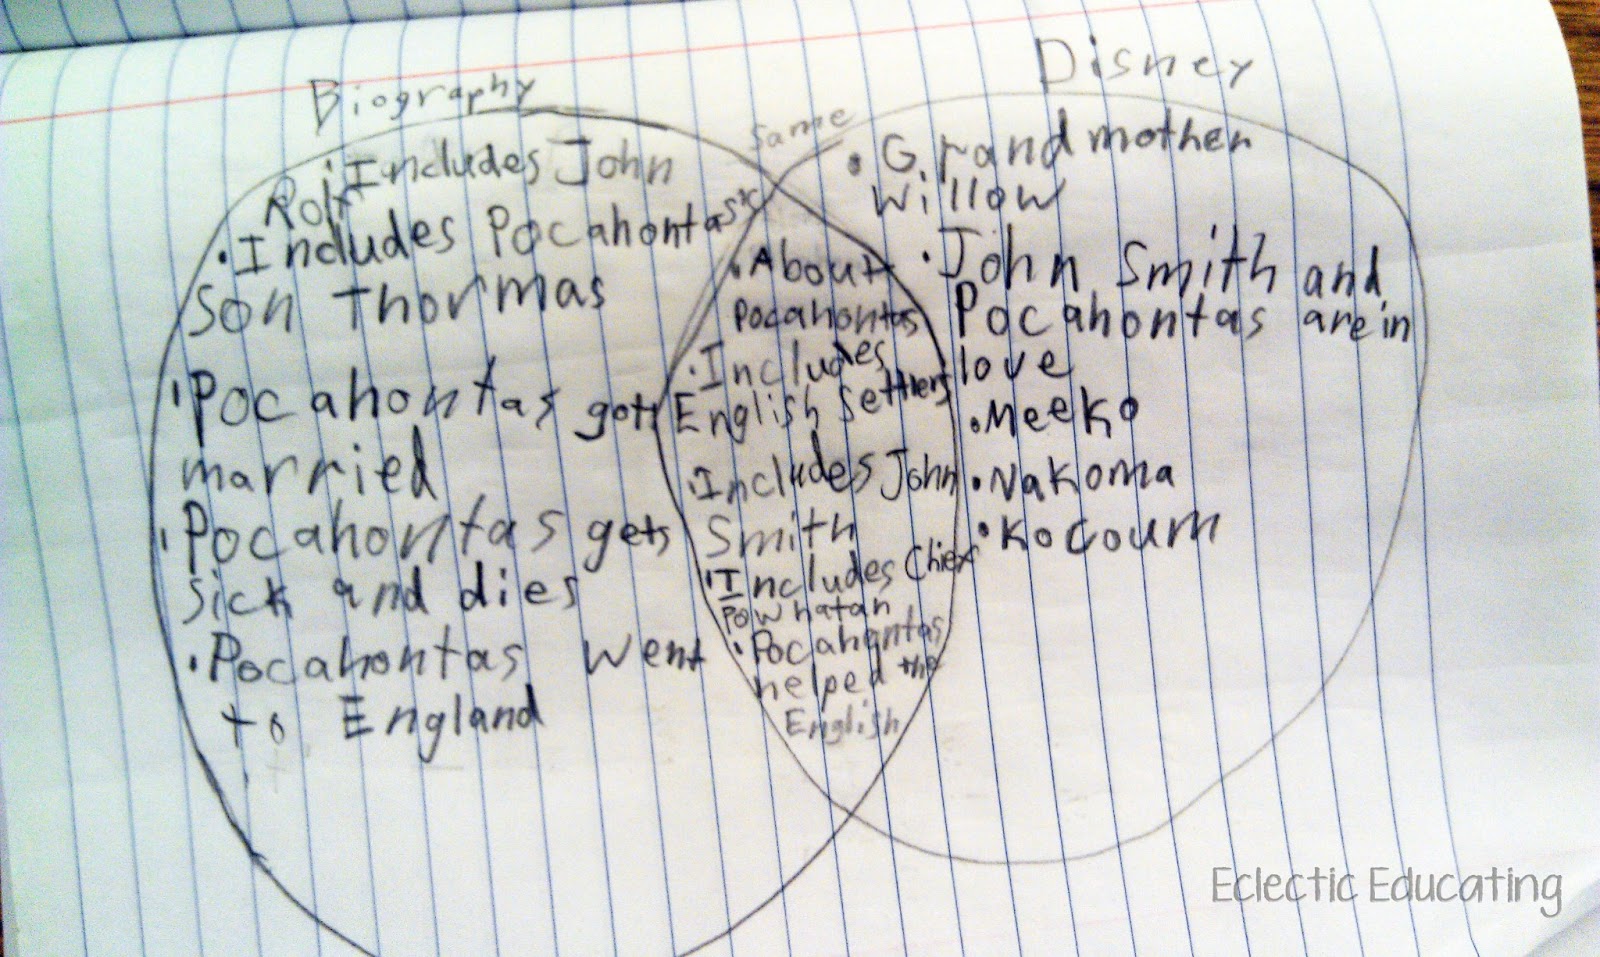 Biography
Includes John
Rolf
• Includes Pocahontas's
son Thormas
• Pocahontas gets
married
• Pocahontas gets
sick and dies
• Pocahontas went
to England
Same
• About
Pocahontas
• Includes
English Settlers
• Includes John
Smith
• Includes Chief
Powhatan
• Pocahontas
helped the
English
Disney
• Grandmother
Willow
• John Smith and
Pocahontas are in
love
• Meeko
• Nakoma
• Kocoum
Eclectic Educating